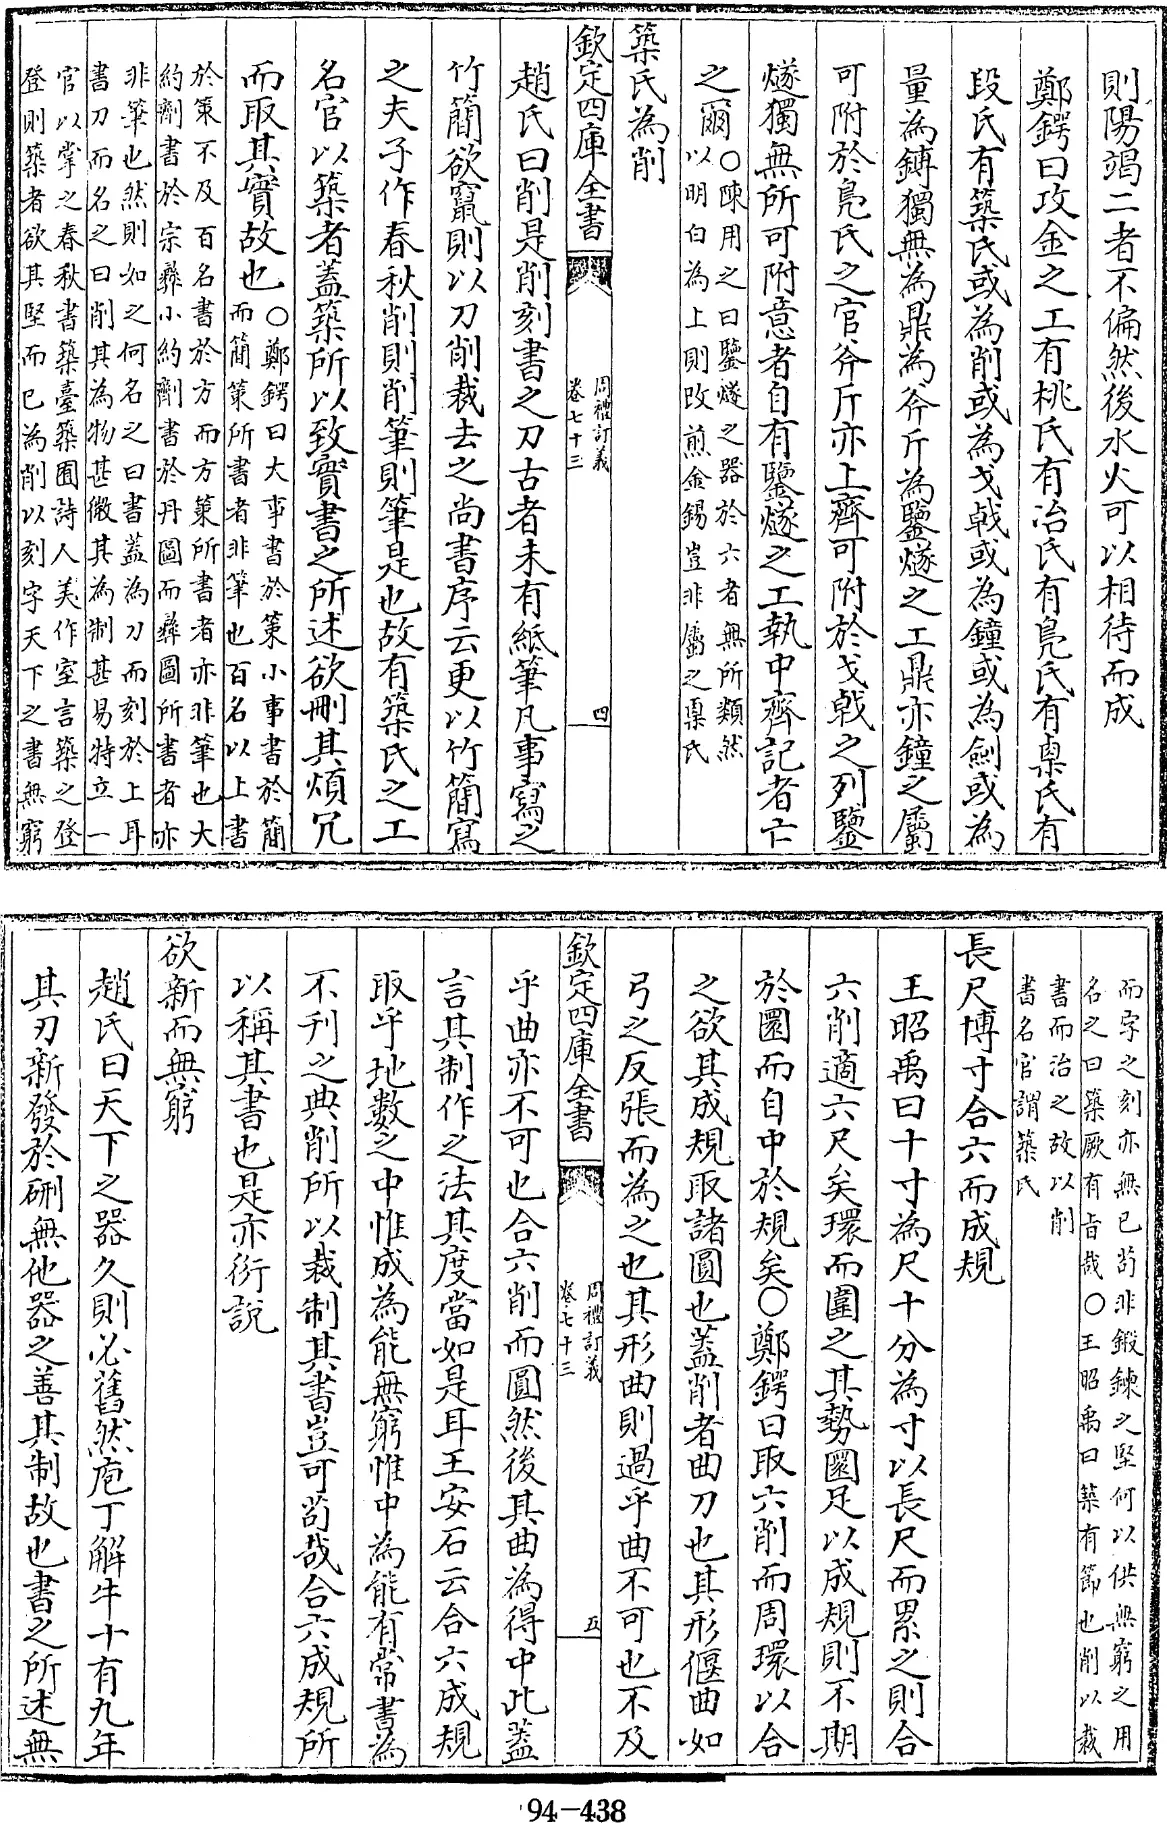 則陽竭二者不偏然後水火可以相待而成
鄭鍔曰攻金之工有桃氏有冶氏有鳬氏有㮚氏有
段氏有築氏或為削或為戈戟或為鐘或為劍或為
量為鎛獨無為鼎為斧斤為鑒燧之工鼎亦鐘之屬
可附於鳬氏之官斧斤亦上齊可附於戈戟之列鑒
燧獨無所可附意者自有鑒燧之工執中齊記者亡
之爾○陳用之曰鑒燧之器於六者無所類然
以明白為上則改煎金錫豈非屬之㮚氏
築氏為削
欽定四庫全書
周禮訂義
卷七十三
四
趙氏曰削是削刻書之刀古者未有紙筆凡事寫之
竹簡欲竄則以刀削裁去之尚書序云更以竹簡寫
之夫子作春秋削則削筆則筆是也故有築氏之工
名官以築者蓋築所以致實書之所述欲刪其煩冗
而取其實故也○鄭鍔曰大事書於策小事書於簡
而簡策所書者非筆也百名以上書
於策不及百名書於方而方策所書者亦非筆也大
約劑書於宗彝小約劑書於丹圖而彝圖所書者亦
非筆也然則如之何名之曰書蓋為刀而刻於上耳
書刀而名之曰削其為物甚微其為制甚易特立一
官以掌之春秋書築臺築囿詩人美作室言築之登
登則築者欲其堅而已為削以刻字天下之書無窮
而字之刻亦無已茍非鍛鍊之堅何以供無窮之用
名之曰築厥有旨哉○王昭禹曰築有節也削以裁
書而治之故以削
書名官謂築氏
長尺博寸合六而成規
王昭禹曰十寸為尺十分為寸以長尺而累之則合
六削適六尺矣環而圍之其勢圜足以成規則不期
於圜而自中於規矣○鄭鍔曰取六削而周環以合
之欲其成規取諸圓也蓋削者曲刀也其形偃曲如
弓之反張而為之也其形曲則過乎曲不可也不及
欽定四庫全書
周禮訂義
卷七十三
五
乎曲亦不可也合六削而圓然後其曲為得中此蓋
言其制作之法其度當如是耳王安石云合六成規
取乎地數之中惟成為能無窮惟中為能有常書為
不刊之典削所以裁制其書豈可茍哉合六成規所
以稱其書也是亦衍說
欲新而無窮
趙氏曰天下之器久則必舊然庖丁解牛十有九年
其刃新發於硎無他器之善其制故也書之所述無
94-438